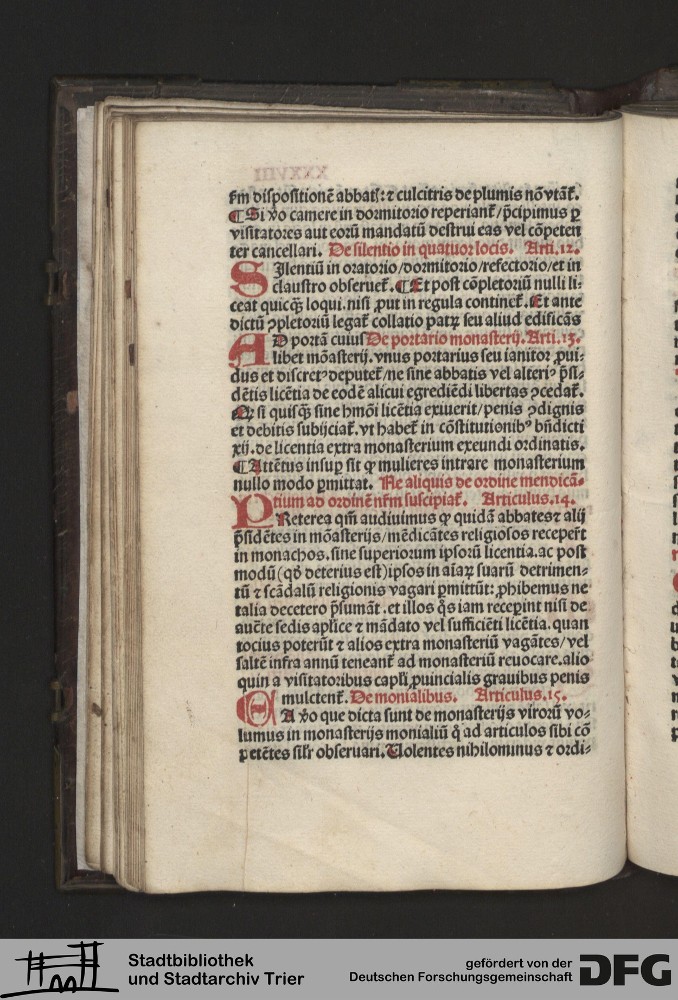 XXXVIII
ſm diſpoſitionē abbatꝭ: ⁊ culcitris de plumis nō vtāt̃.
¶ Si ṽo camere in dormitorio reperiant̃/p̄cipimus ꝑ
viſitatores aut eorū mandatū deſtrui eas vel cōpeten
ter cancellari. De ſilentio in quatuor locis. Arti. 12.
SIlentiū in oratorio/dormitorio/refectorio/et in
clauſtro obſeruet̃. ¶ Et poſt cōpletoriū nulli li⸗
ceat quicꝙ̄ loqui. niſi ꝓut in regula continet̃. Et ante
dictū ꝯpletoriū legat̃ collatio patꝝ ſeu aliud edificās
AD portā cuius De portario monaſterij. Arti. 13.
libet mōaſterij. vnus portarius ſeu ianitor ꝓui⸗
dus et diſcretꝰ deputet̃/ne ſine abbatis vel alteriꝰ p̄ſi⸗
dētis licētia de eodē alicui egrediēdi libertas ꝯcedat̃.
Qꝛ ſi quiſꝙ̄ ſine hmōi licētia exiuerit/penis ꝯdignis
et debitis ſubijciat̃. vt habet̃ in cōſtitutionibꝰ bn̄dicti
xij. de licentia extra monaſterium exeundi ordinatis.
¶ Attētus inſuꝑ ſit ꝙ mulieres intrare monaſterium
nullo modo ꝑmittat. Ne aliquis de ordine mendicā⸗
tium ad ordinē nr̄m ſuſcipiat̃. Articulus. 14.
PReterea qm̄ audiuimus ꝙ quidā abbates ⁊ alij
p̄ſidētes in mōaſterijs/mēdicātes religioſos recepert̄
in monachos. ſine ſuperiorum ipſorū licentia. ac poſt
modū (qd̄ deterius eſt) ipſos in aīaꝝ ſuarū detrimen⸗
tū ⁊ ſcādalū religionis vagari ꝑmittūt: ꝓhibemus ne
talia decetero p̄ſumāt. et illos q̄s iam receꝑint niſi de
auēte ſedis aplice ⁊ mādato vel ſufficiēti licētia. quan
tocius poterūt ⁊ alios extra monaſteriū vagātes/vel
ſaltē infra annū teneant̃ ad monaſteriū reuocare. alio
quin a viſitatoribus capl̄i ꝓuincialis grauibus penis
mulctent̃. De monialibus. Articulus. 15.
EA ṽo que dicta ſunt de monaſterijs virorū vo⸗
lumus in monaſterijs monialiū q̊ ad articulos ſibi cō
petētes ſilr̄ obſeruari. Uolentes nihilominus ⁊ ordi⸗
Stadtbibliothek
und Stadtarchiv Trier
gefördert von der
Deutschen Forschungsgemeinschaft
DFG